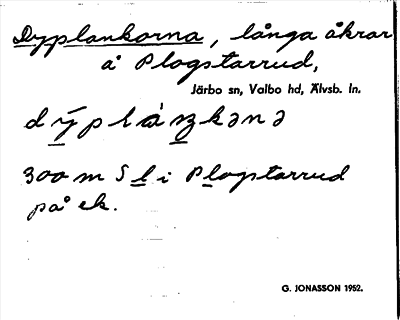 Dyplankorna, långa åkrar
å Plogstarrud,
Järbo sn, Valbo hd, Älvsb. ln.
dý̱plàṉkənə
300 m S l i Plogstarrud
på ek.
G. JONASSON 1952.